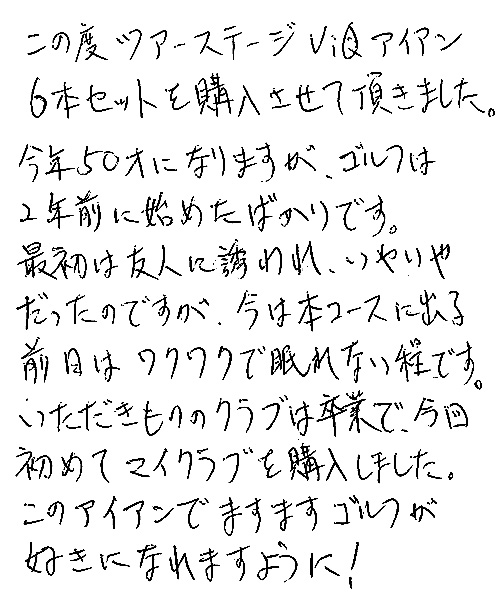 この度ツアーステージViQアイアン
6本セットを購入させて頂きました。
今年50才になりますが、ゴルフは
2年前に始めたばかりです。
最初は友人に誘われ、いやいや
だったのですが、今は本コースに出る
前日はワクワクで眠れない程です。
いただきもののクラブは卒業で、今回
初めてマイクラブを購入しました。
このアイアンでますますゴルフが
好きになれますように!